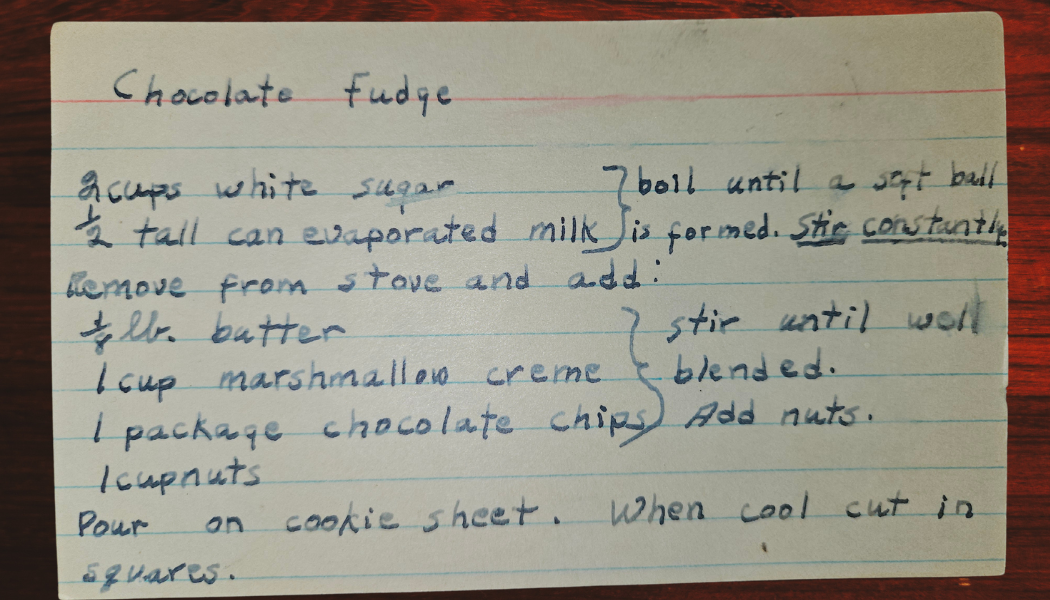 Chocolate Fudge
2 cups white sugar } boil until a soft ball
1/2 tall can evaporated milk } is formed. Stir constantly
Remove from stove and add:
1/8 lb. butter } stir until well
1 cup marshmallow creme } blended.
1 package chocolate chips } Add nuts.
1 cup nuts
Pour on cookie sheet. When cool cut in
squares.